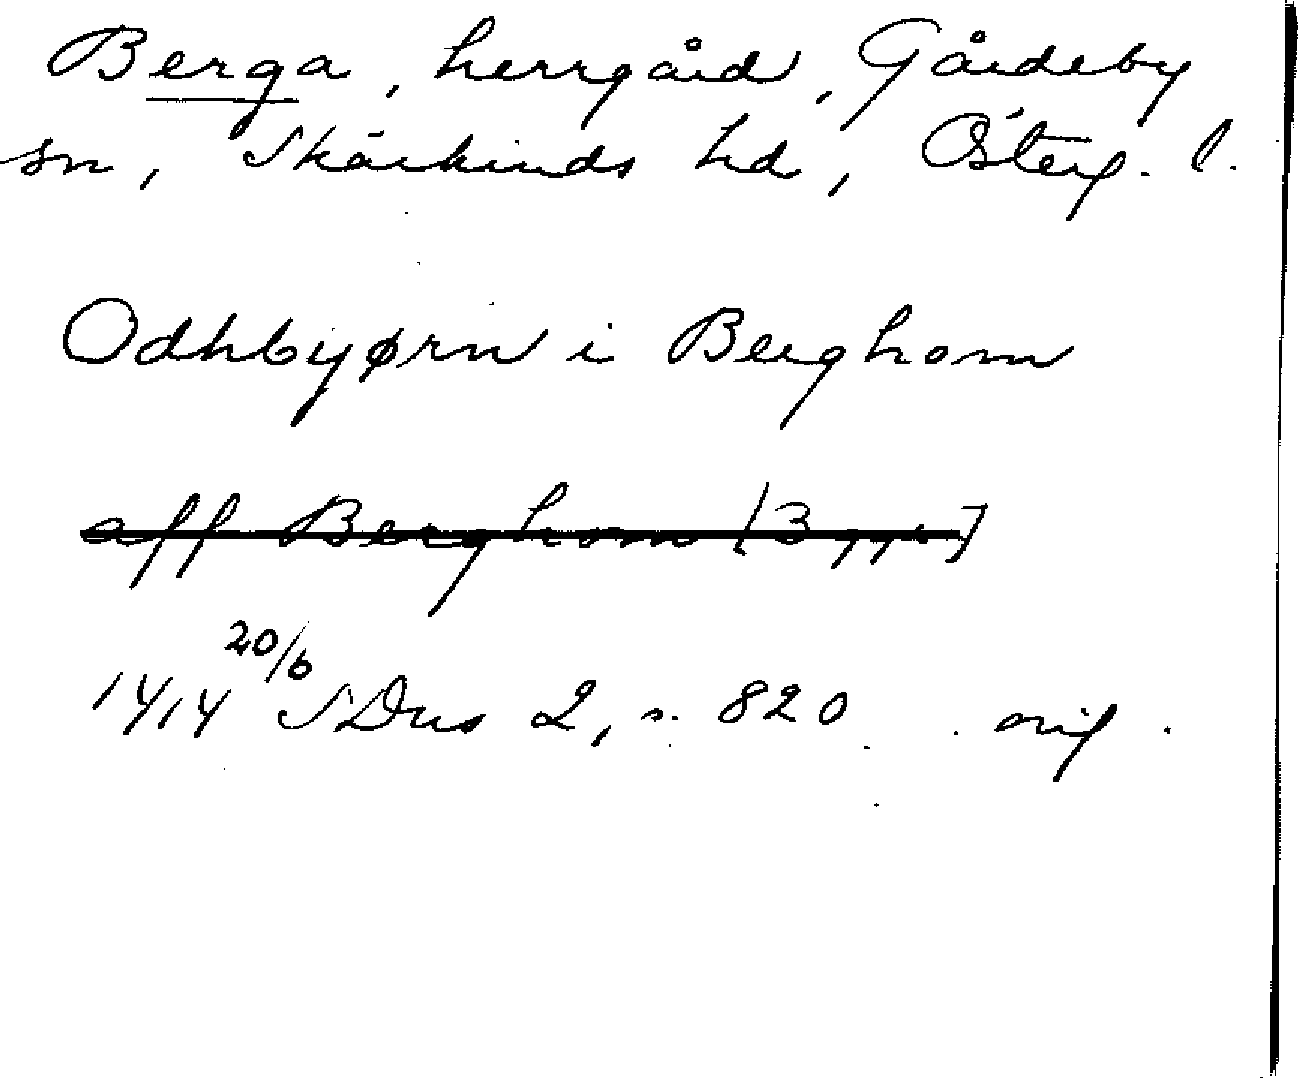 Berga, herrgård, Gårdeby
sn, Skärkinds hd, Österg. l.
Odhbyørn i Berghom
aff Berghom [3 ggr]
1414 20/6 SDns 2, s. 820 orig.